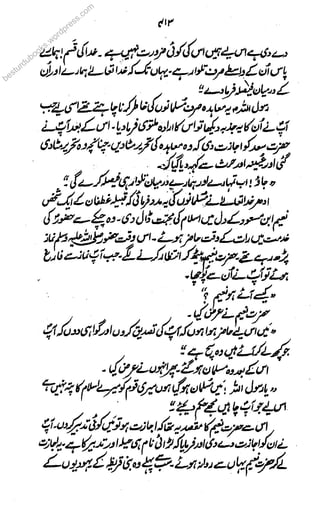 ۷۱۳
دے دی ہے اس لیے ہمیں اس کی کوئی ضرورت نہیں ہے۔ خدا کی قسم! ہمارے
پاس اُن کے واسطے صرف تلوار ہے۔ یہاں تک کہ خدا تعالےٰ ہمارے اور اُن
کے درمیان فیصلہ فرما دے"
رسول اللہ یہ معاہدہ صرف مسلمانوں کی خاطر کرنا چاہتے تھے اسی لیے جب
آپؐ نے اُن کا یہ جذبہ دیکھا تو اس کا ارادہ ملتوی فرما دیا۔ اس کے بعد آپؐ نے
حضرت سعد کو اجازت دی کہ وہ معاہدہ کی تحریر مٹا دیں۔ چنانچہ وہ تحریر مٹا دی
گئی اور عیینہ اور حرث سے کہہ دیا گیا کہ۔
"جاؤ! اب تمہارے اور ہمارے درمیان تلوار ہی فیصلہ کرے گی"
ادھر خدا تعالےٰ نے مسلمانوں کی یہ مدد فرمائی کہ قبیلہ غطفان کے ایک شخص
نعیم ابن مسعود کے دل میں اسلام کی محبت ڈال دی۔ وہ چپکے سے حضورؐ کی
خدمت میں رات کے وقت حاضر ہوئے۔ اس وقت حضور صلی اللہ علیہ وسلم نماز
پڑھ رہے تھے۔ حضرت نعیم بیٹھ کر انتظار کرنے لگے۔ جب آپؐ نماز سے فارغ
ہوئے تو آپؐ نے اُن سے پوچھا۔
"کیسے آئے ہو نعیم؟"
حضرت نعیم نے عرض کیا۔
"میں اس لیے حاضر ہوا ہوں کہ آپؐ کی تصدیق کروں اور گواہی دوں کہ آپؐ
جو کچھ لے کر آئے ہیں وہ سچ ہے"
اس کے بعد وہ مسلمان ہو گئے۔ پھر انہوں نے عرض کیا۔
"یا رسول اللہ! میں مسلمان ہو گیا ہوں میری قوم کو میرے اسلام کا پتہ نہیں ہے
اس لیے جو آپؐ چاہیں مجھے حکم دیجئے"
اس سے حضرت نعیم کا مقصد یہ تھا کہ اجازت ہو تو میں کوئی تدبیر کروں۔ آپؐ
نے ان کو اجازت دے دی اور فرمایا کہ لڑائی نام ہی حیلہ اور تدبیر کا ہے۔ یہ اجازت
لے کر حضرت نعیم یہاں سے روانہ ہوئے۔ سب سے پہلے وہ بنی قریظہ کے یہودیوں کے
besturdubooks.wordpress.com